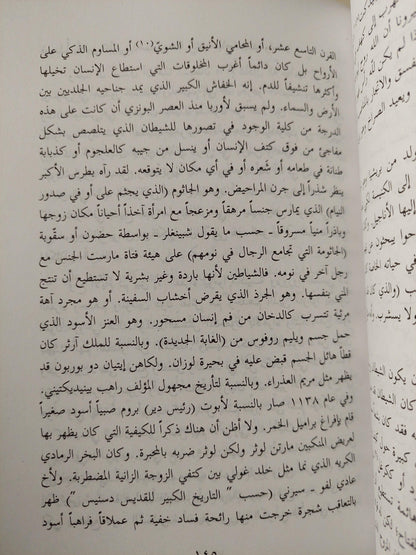 القرن التاسع عشر، أو المحامي الأنيق أو الشويّ(١٠) أو المساوم الذكي على
الأرواح بل كان دائماً أغرب المخلوقات التي استطاع الإنسان تخيلها
وأكثرها تنشيفاً للدم. إنه الخفاش الكبير الذي يمد جناحيه الجلديين بين
الأرض والسماء. ولم يسبق لأوربا منذ العصر البونزي أن كانت على هذه
الدرجة من كلية الوجود في تصورها للشيطان الذي يتلصص بشكل
مفاجئ من فوق كتف الإنسان أو ينسل من جيبه كالعلجوم أو كذبابة
طنانة في طعامه أو شَعره أو في أي مكان لا يتوقعه. لقد رآه بطرس الأكبر
ينظر شذراً إلى جرن المراحيض. وهو الجاثوم (الذي يجثم على أو في صدور
النيام) الذي يمارس جنساً مرهقاً ومزعجاً مع امرأة آخذاً أحياناً مكان زوجها
وباقراً منياً مسروقاً – حسب ما يقول شبينغلر – بواسطة حضون أو سقّوبة
(الجاثومة التي تجامع الرجال في نومهم) على هيئة فتاة مارست الجنس مع
رجل آخر في نومه. فالشياطين لأنها باردة وغير بشرية لا تستطيع أن تنتج
المني بنفسها. وهو الجرذ الذي يقرض أخشاب السفينة. أو هو مجرد آهة
مرئية تتسرب كالدخان من فم إنسان مسحور. وهو العنز الأسود الذي
حمل جسم ويليم روفوس من (الغابة الجديدة). وبالنسبة للملك آرثر كان
قطاً هائل الجسم قبض عليه في بحيرة لوزان. ولكاهن إيتيان دو بوربون قد
يظهر مثل مريم العذراء. وبالنسبة لتأريخ مجهول المؤلف راهب بينيديكتيني.
وفي عام ١١٣٨ صار بالنسبة لأبوت (رئيس دير) بروم صبياً أسود صغيراً
قام بإفراغ براميل الخمر. ولا أظن أن هناك ذكراً للكيفية التي كان يظهر بها
لعريض المنكبين مارتن لوثر ولكن لوثر ضربه بالمحبرة. وكان البخر الرمادي
الكريه الذي نما مثل خلد غولي بين كتفي الزوجة الزانية المضطربة. ولأخ
عادي لفو – سيرني (حسب " التاريخ الكبير للقديس دسنيس ") ظهر
بالتعاقب شجرة خرجت منها رائحة فساد خفية ثم عملاقاً فراهباً أسود
١٤٥